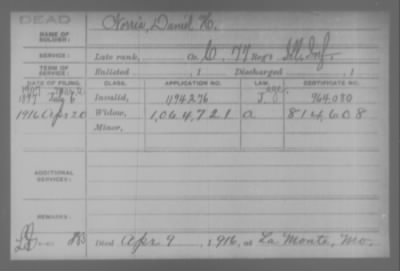 DEAD
NAME OF SOLDIER: Norris, Daniel H.
SERVICE: Late rank, Co. C, 77 Reg't Ill. Inf.
TERM OF SERVICE: Enlisted , 1 Discharged , 1
DATE OF FILING. CLASS. APPLICATION NO. LAW. CERTIFICATE NO.
1897 July 6 Invalid, 1194276 964,080
1916 Apr 20 Widow, 1,064,721 a 814,608
Minor,
ADDITIONAL SERVICES:
REMARKS:
Died Apr. 9, 1916, at La Monte, Mo.